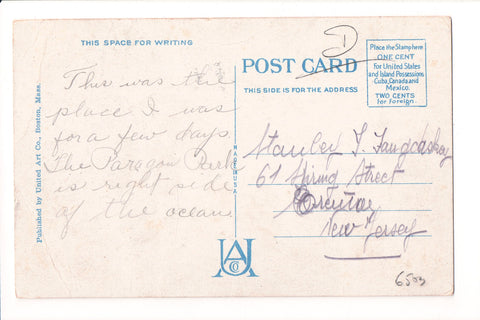 THIS SPACE FOR WRITING
This was the
place I was
for a few days.
The Paragon Park
is right side
of the ocean
Published by United Art Co., Boston, Mass.
POST CARD
THIS SIDE IS FOR THE ADDRESS
MADE IN U.S.A.
Place the Stamp here
ONE CENT
For United States
and Island Possessions
Cuba, Canada and
Mexico.
TWO CENTS
for Foreign.
Stanley
61 Spring Street
New Jersey
UA
CO
6503